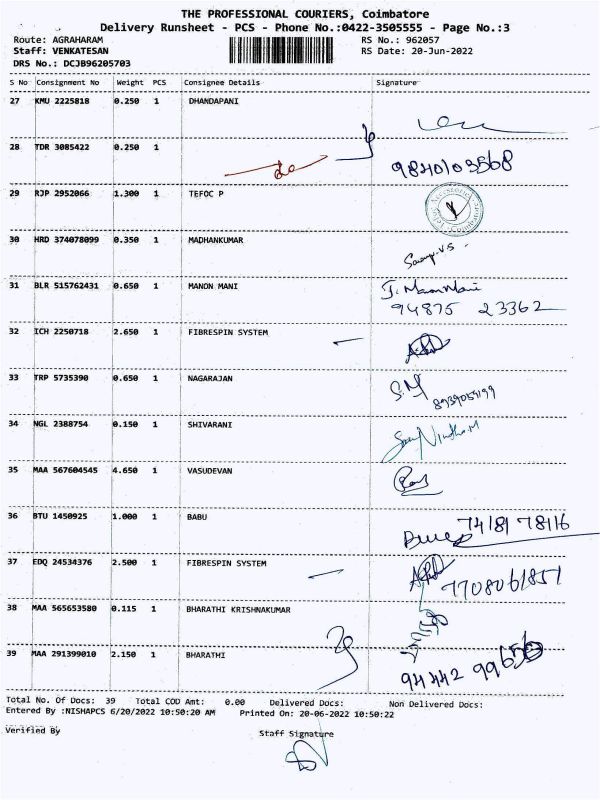 THE PROFESSIONAL COURIERS, Coimbatore
Delivery Runsheet - PCS - Phone No.:0422-3505555 - Page No.:3
Route: AGRAHARAM RS No.: 962057
Staff: VENKATESAN RS Date: 20-Jun-2022
DRS No.: DCJB96205703
S No Consignment No Weight PCS Consignee Details Signature
27 KMU 2225818 0.250 1 DHANDAPANI
28 TDR 3085422 0.250 1
9840103568
29 RJP 2952066 1.300 1 TEFOC P
30 HRD 374078099 0.350 1 MADHANKUMAR
31 BLR 515762431 0.650 1 MANON MANI J. Manon Mani
94875 23362
32 ICH 2250718 2.650 1 FIBRESPIN SYSTEM
33 TRP 5735390 0.650 1 NAGARAJAN S.M
34 NGL 2388754 0.150 1 SHIVARANI
35 MAA 567604545 4.650 1 VASUDEVAN
36 BTU 1450925 1.000 1 BABU 74181 78116
37 EDQ 24534376 2.500 1 FIBRESPIN SYSTEM
7708061851
38 MAA 565653580 0.115 1 BHARATHI KRISHNAKUMAR
39 MAA 291399010 2.150 1 BHARATHI
94442
Total No. Of Docs: 39 Total COD Amt: 0.00 Delivered Docs: Non Delivered Docs:
Entered By :NISHAPCS 6/20/2022 10:50:20 AM Printed On: 20-06-2022 10:50:22
Verified By Staff Signature